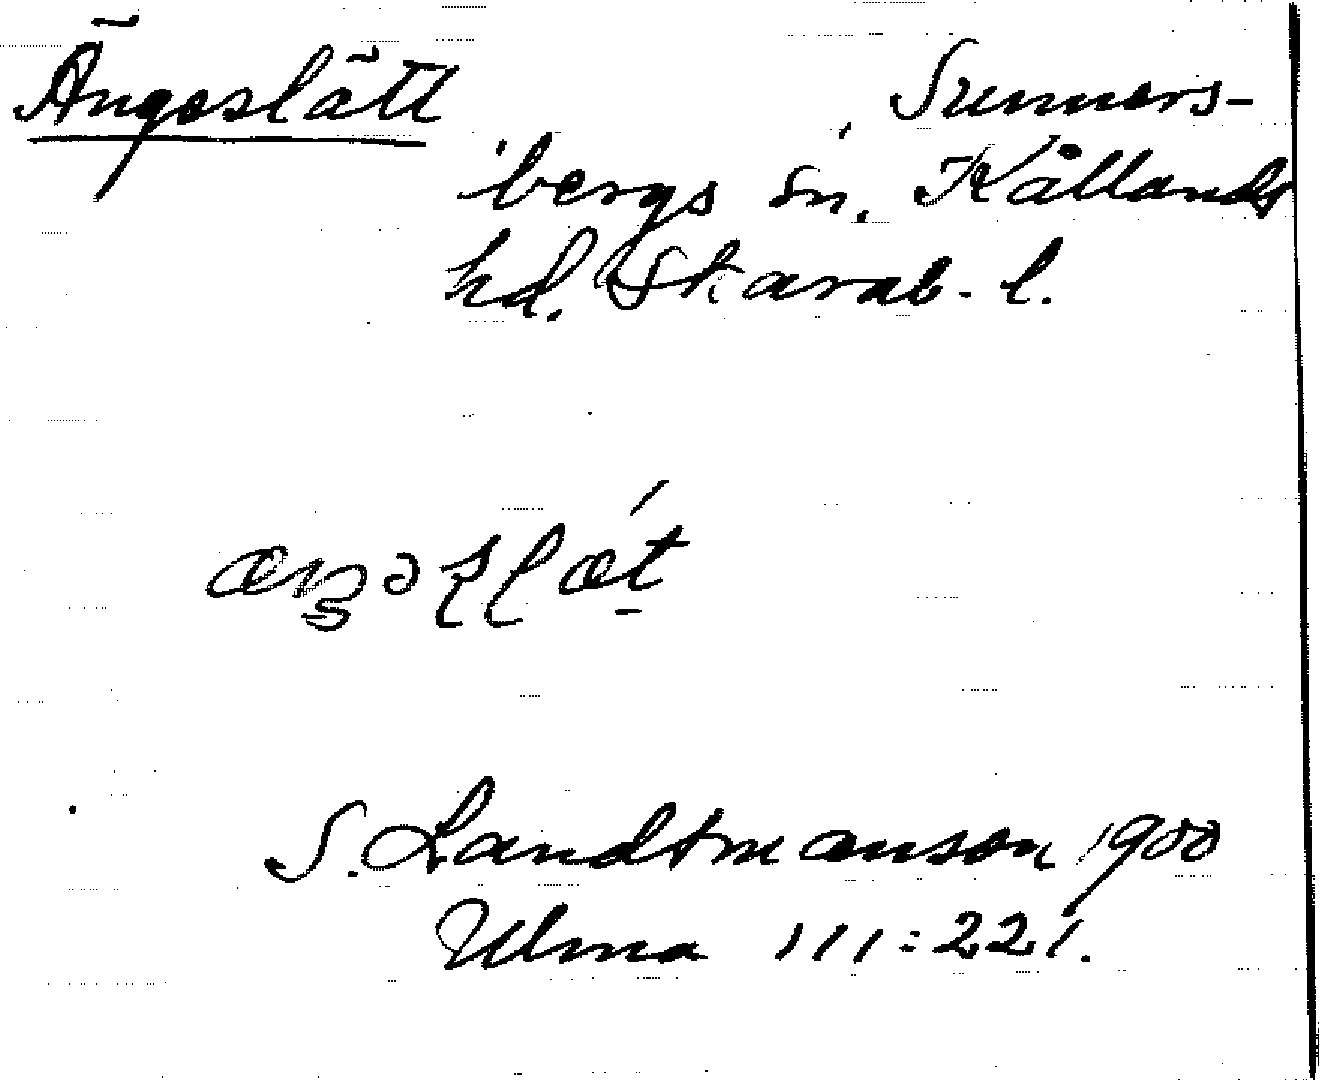 Ängeslätt Sunners-
bergs sn. Kållands
hd. Skarab. l.
S. Landtmanson 1900
Ulma 111:221.